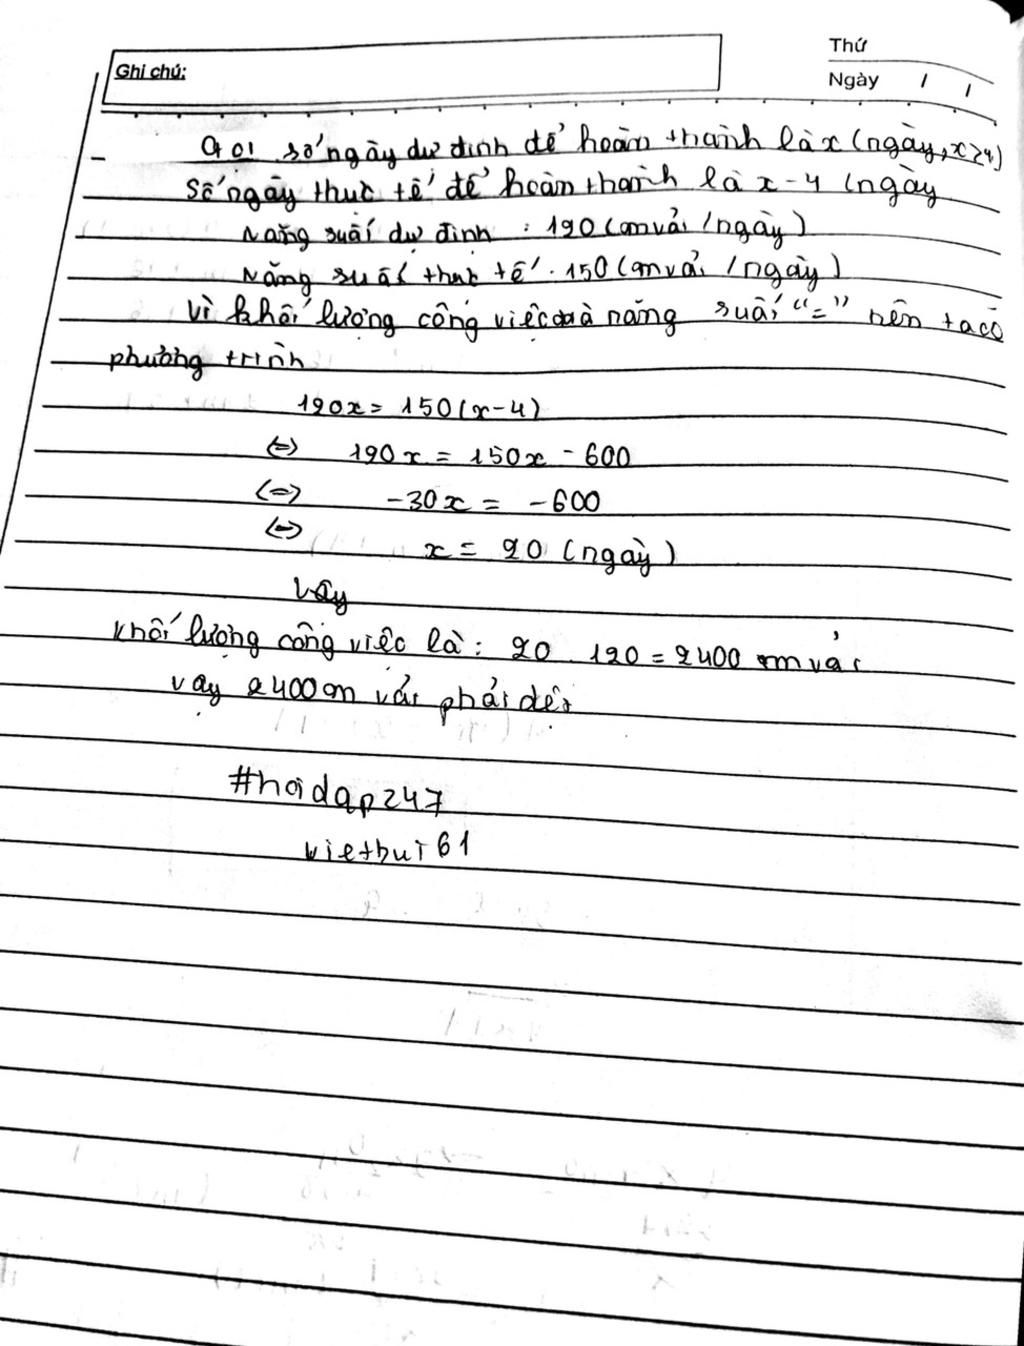 Ghi chú:
Thứ
Ngày / /
- Gọi số ngày dự định để hoàn thành là x (ngày, x>4)
Số ngày thực tế để hoàn thành là x-4 (ngày
Năng suất dự định : 120 (m vải / ngày)
Năng suất thực tế . 150 (m vải / ngày)
Vì khối lượng công việc và năng suất "=" nên ta có
phương trình
120x = 150(x-4)
<=> 120x = 150x - 600
<=> -30x = -600
<=> x = 20 (ngày)
Vậy
Khối lượng công việc là : 20 . 120 = 2400 m vải
Vậy 2400m vải phải dệt
#hoidap247
vietbui61